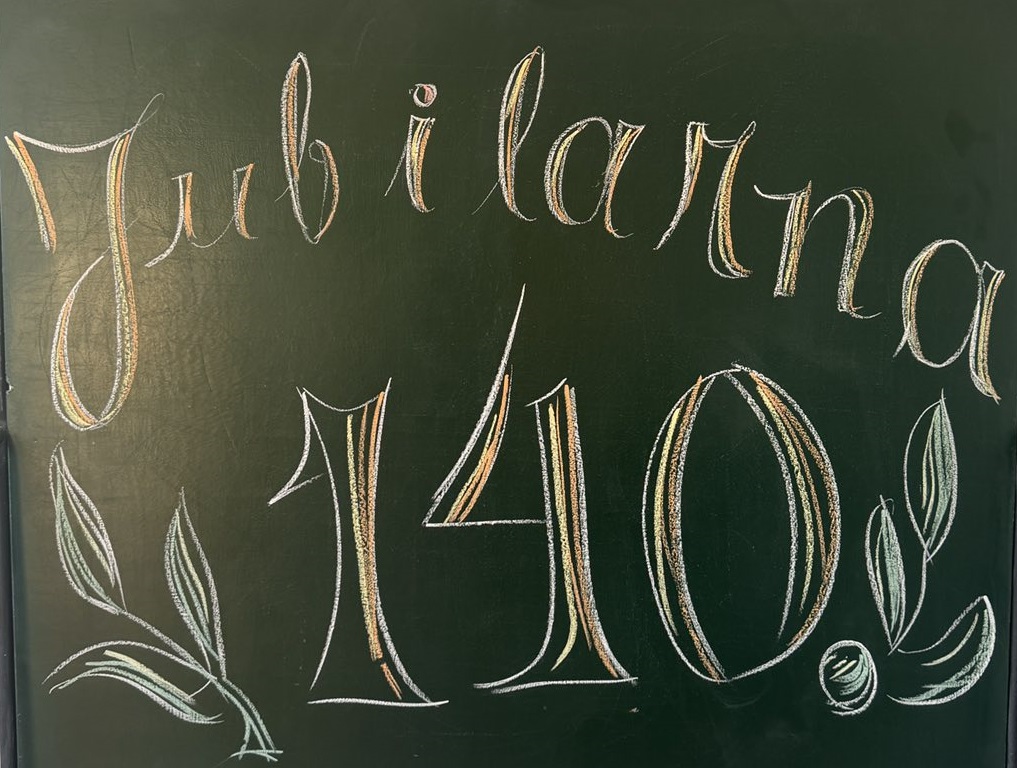 Jubilarna
140.